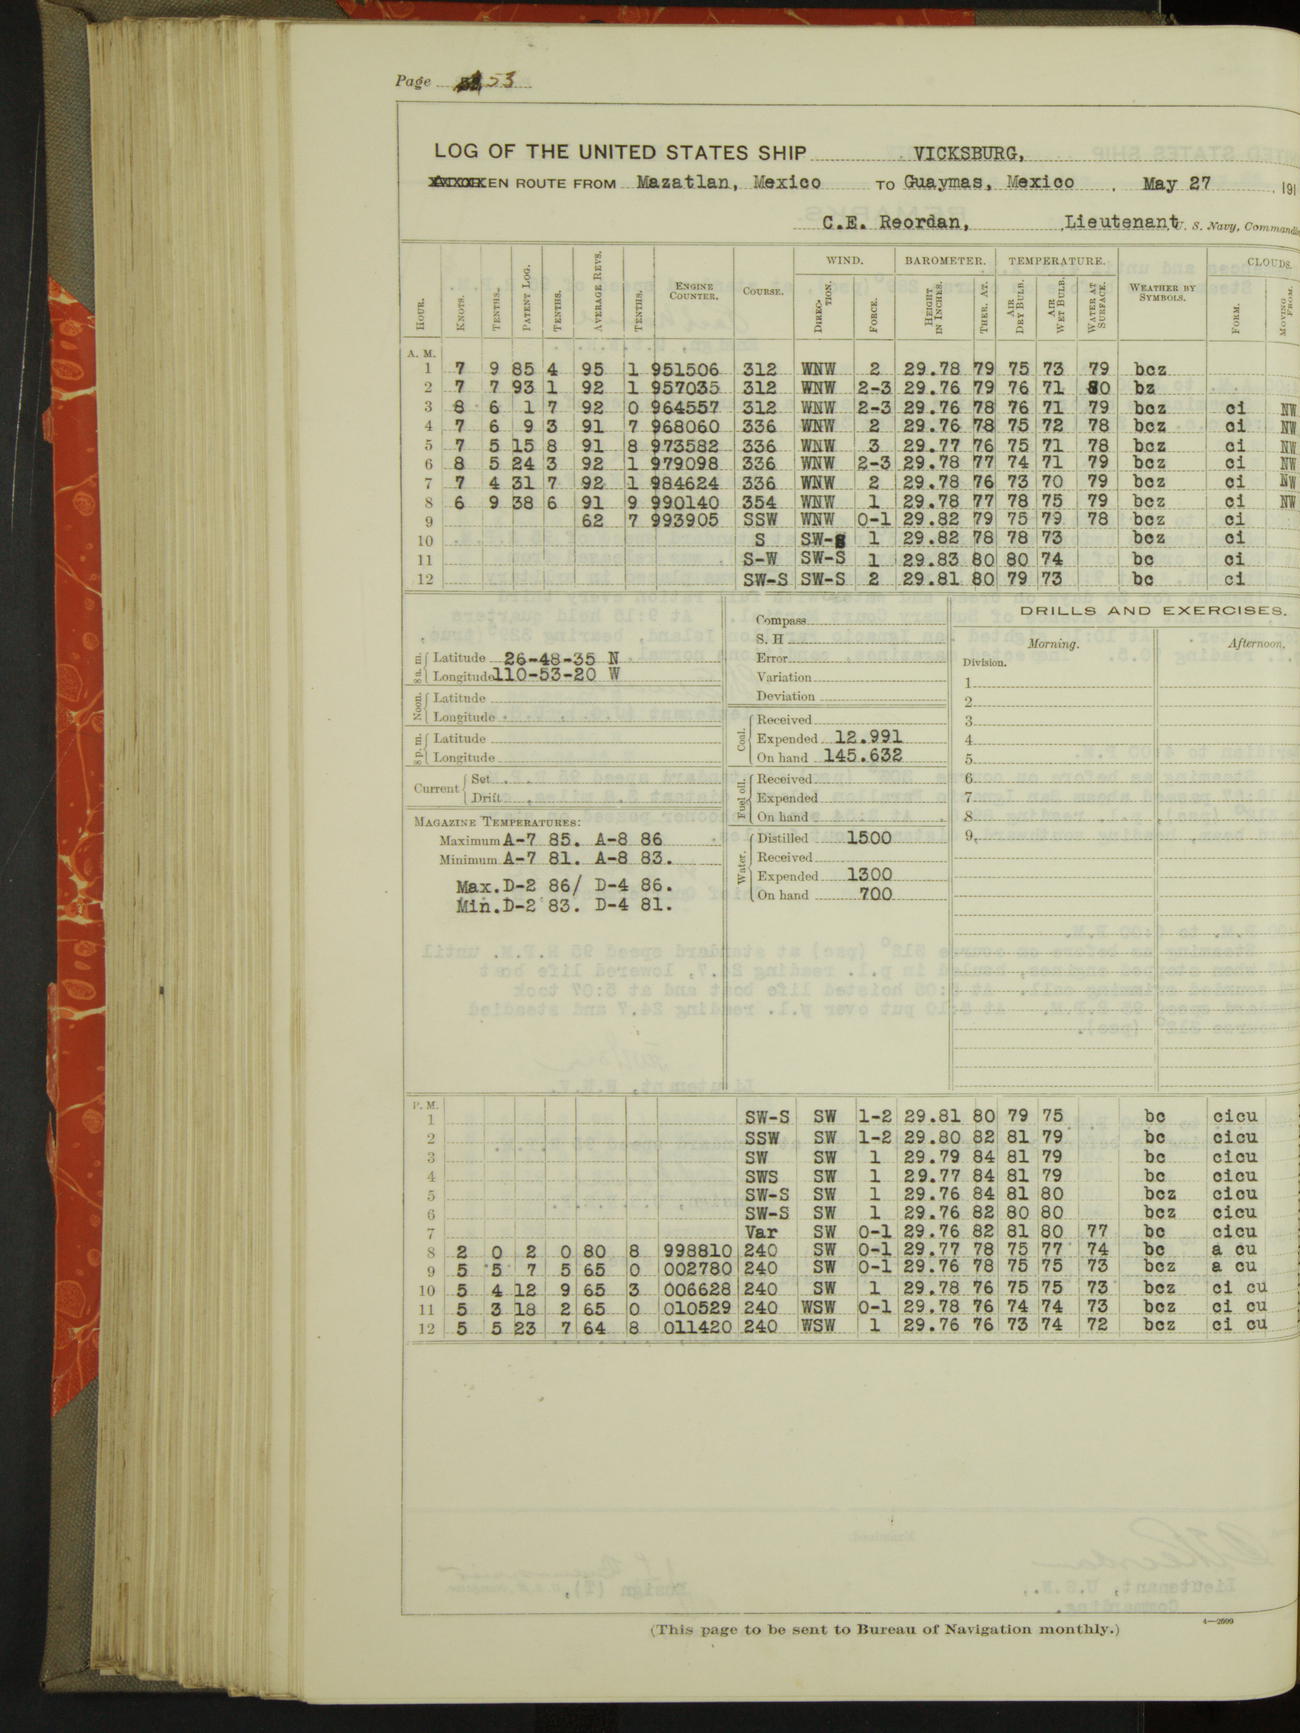 Page 53
LOG OF THE UNITED STATES SHIP VICKSBURG,
EN ROUTE FROM Mazatlan, Mexico TO Guaymas, Mexico , May 27 , 191
C.E. Reordan, Lieutenant, U. S. Navy, Commandi
WIND. BAROMETER. TEMPERATURE. CLOUDS.
HOUR. KNOTS. TENTHS. PATENT LOG. TENTHS. AVERAGE REVS. TENTHS. ENGINE COUNTER. COURSE. DIRECTION. FORCE. HEIGHT IN INCHES. THER. AT. AIR DRY BULB. AIR WET BULB. WATER AT SURFACE. WEATHER BY SYMBOLS. FORM. MOVING FROM.
A. M.
1 7 9 85 4 95 1 951506 312 WNW 2 29.78 79 75 73 79 bcz
2 7 7 93 1 92 1 957035 312 WNW 2-3 29.76 79 76 71 80 bz
3 8 6 1 7 92 0 964557 312 WNW 2-3 29.76 78 76 71 79 bcz ci NW
4 7 6 9 3 91 7 968060 336 WNW 2 29.76 78 75 72 78 bcz ci NW
5 7 5 15 8 91 8 973582 336 WNW 3 29.77 76 75 71 78 bcz ci NW
6 8 5 24 3 92 1 979098 336 WNW 2-3 29.78 77 74 71 79 bcz ci NW
7 7 4 31 7 92 1 984624 336 WNW 2 29.78 76 73 70 79 bcz ci NW
8 6 9 38 6 91 9 990140 354 WNW 1 29.78 77 78 75 79 bcz ci NW
9 62 7 993905 SSW WNW 0-1 29.82 79 75 79 78 bcz ci
10 S SW-S 1 29.82 78 78 73 bcz ci
11 S-W SW-S 1 29.83 80 80 74 bc ci
12 SW-S SW-S 2 29.81 80 79 73 bc ci
8 a.m. Latitude 26-48-35 N
Longitude 110-53-20 W
Noon. Latitude
Longitude
8 p.m. Latitude
Longitude
Current Set
Drift
MAGAZINE TEMPERATURES:
Maximum A-7 85. A-8 86
Minimum A-7 81. A-8 83.
Max. D-2 86/ D-4 86.
Min. D-2 83. D-4 81.
Compass
S. H
Error
Variation
Deviation
Coal. Received
Expended 12.991
On hand 145.632
Fuel oil. Received
Expended
On hand
Water. Distilled 1500
Received
Expended 1300
On hand 700
DRILLS AND EXERCISES.
Morning. Afternoon.
Division.
1
2
3
4
5
6
7
8
9
P. M.
1 SW-S SW 1-2 29.81 80 79 75 bc cicu
2 SSW SW 1-2 29.80 82 81 79 bc cicu
3 SW SW 1 29.79 84 81 79 bc cicu
4 SWS SW 1 29.77 84 81 79 bc cicu
5 SW-S SW 1 29.76 84 81 80 bcz cicu
6 SW-S SW 1 29.76 82 80 80 bcz cicu
7 Var SW 0-1 29.76 82 81 80 77 bc cicu
8 2 0 2 0 80 8 998810 240 SW 0-1 29.77 78 75 77 74 bc a cu
9 5 5 7 5 65 0 002780 240 SW 0-1 29.76 78 75 75 73 bcz a cu
10 5 4 12 9 65 3 006628 240 SW 1 29.78 76 75 75 73 bcz ci cu
11 5 3 18 2 65 0 010529 240 WSW 0-1 29.78 76 74 74 73 bcz ci cu
12 5 5 23 7 64 8 011420 240 WSW 1 29.76 76 73 74 72 bcz ci cu
(This page to be sent to Bureau of Navigation monthly.) 4—2599